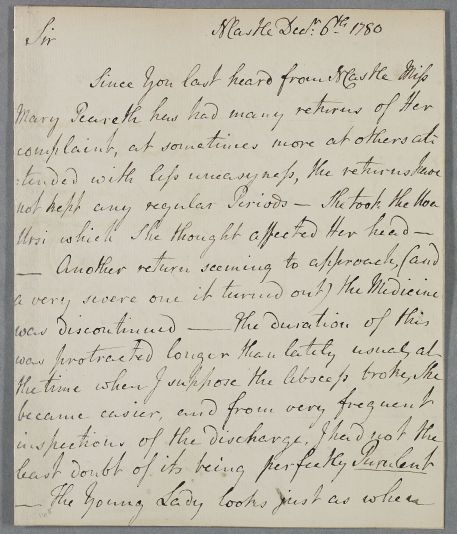 NCastle Decr. 6th 1780
Sir
Since You last heard from NCastle Miss
Mary Peareth has had many returns of Her
complaint, at sometimes more at others at:
:tended with less uneasyness, the returns have
not kept any regular Periods — She took the Uva
Ursi which She thought affected Her head —
— Another return seeming to approach, (and
a very severe one it turned out) the Medicine
was discontinued — The duration of this
was protracted longer than lately usual, at
the time when I suppose the Abscess broke, She
became easier, and from very frequent
inspections of the discharge, I had not the
least doubt of its being perfectly Purulent
— The Young Lady looks just as when